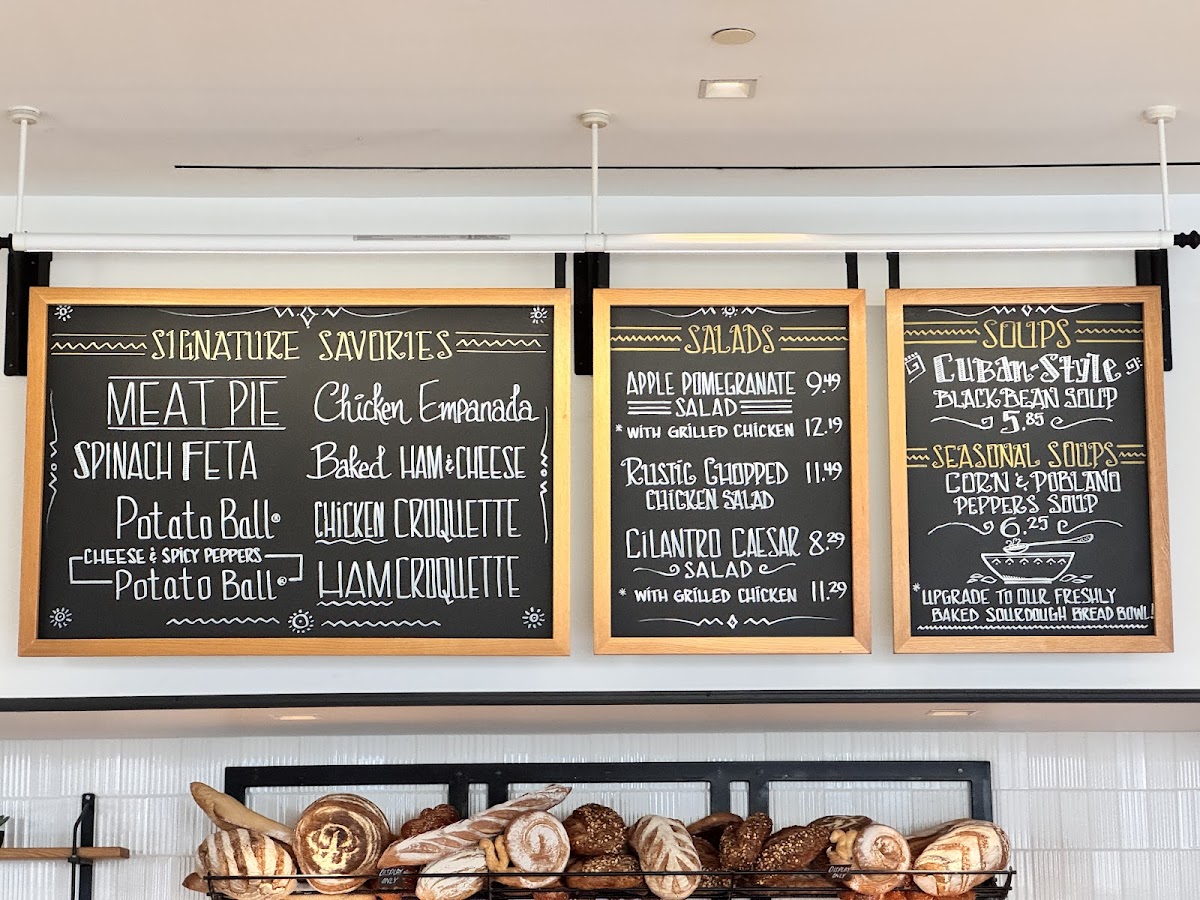 SIGNATURE SAVORIES
MEAT PIE
SPINACH FETA
Potato Ball®
CHEESE & SPICY PEPPERS
Potato Ball®
Chicken Empanada
Baked HAM & CHEESE
CHICKEN CROQUETTE
HAM CROQUETTE
SALADS
APPLE POMEGRANATE 9.49
SALAD
* WITH GRILLED CHICKEN 12.19
RUSTIC CHOPPED 11.49
CHICKEN SALAD
CILANTRO CAESAR 8.29
SALAD
* WITH GRILLED CHICKEN 11.29
SOUPS
CUBAN-STYLE
BLACK BEAN SOUP
5.85
SEASONAL SOUPS
CORN & POBLANO
PEPPERS SOUP
6.25
*UPGRADE TO OUR FRESHLY
BAKED SOURDOUGH BREAD BOWL!
DISPLAY
ONLY
DISPLAY
ONLY